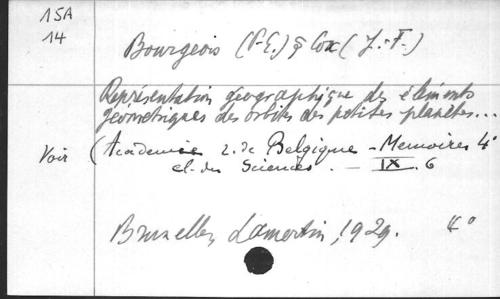 15A
14
Bourgeois (P.-E.) & Cox (J.-F.)
Représentation géographique des éléments
géometriques des orbits des petites planètes...
Voir (Académie r. de Belgique - Memoires 4°
cl. des Sciences. - IX. 6
Bruxelles, Lamertin, 1929. 4°